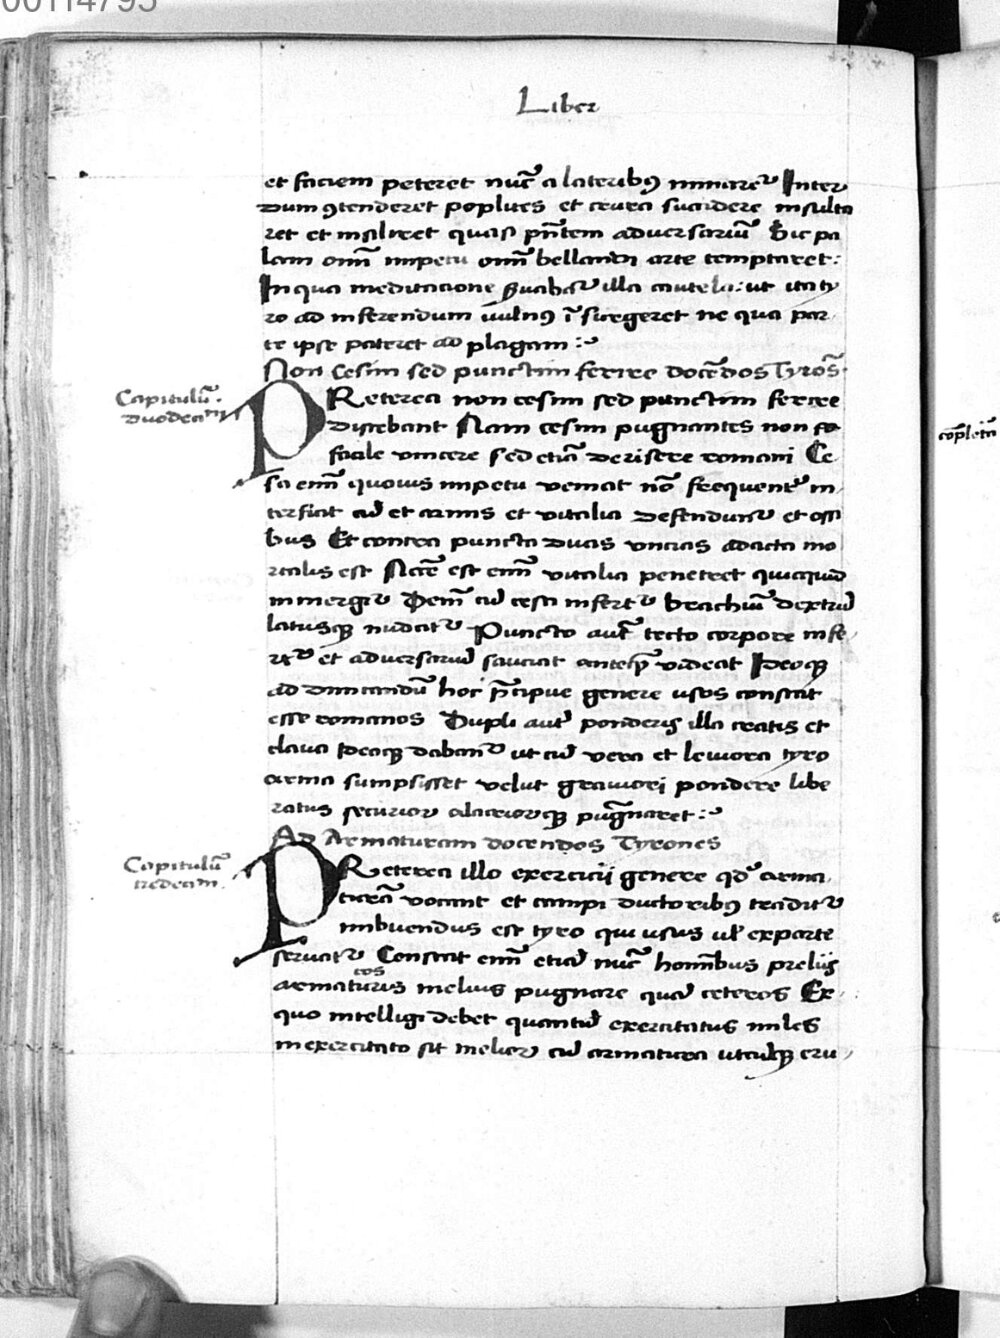 00114795
Liber
et faciem peteret nūc a lateribꝯ minaret᷑ Inter
dum ꝯtenderet poplites et crura sucidere insulta
ret et insiliret quasi pn̄tem aduersariū Sic pa
lam omī impetu omī bellandi arte temptaret:
In qua meditacione ẜuabat᷑ illa cautela: ut ita ty
ro ad inferendum uulnꝯ ī surgeret ne qua par
te ipse pateret ad plagam :~
Non Cesim sed punctim ferire docēdos Tyrōs
Capitulū
duodecim
PReterea non cesim sed punctim ferire
discebant Nam cesim pugnantes non fa
facile vincere sed etiā derisere romani Ce
sa enī quouis impetu veniat nō frequent᷑ in
terficit cū et armis et vitalia defendunt᷑ et ossi
bus Et contra puncta duas vncias adacta mo
rtalis est Necē est enī vitalia penetret quicquid
inmergit᷑ Deīn cū cesa infert᷑ brachiū dextrū
latusqꝫ nudat᷑ Puncto aut̄ tecto corpore infe
rt᷑ et aduersariū sauciat anteqꝫ videat Ideoqꝫ
ad dimicandū hoc p̄cipue genere usos constat
esse romanos Dupli aut̄ ponderis illa cratis et
claua Ideoqꝫ dabant᷑ ut cū vera et leuiora tyro
arma sumpsisset velut grauiori pondere libe
ratus securior alacriorqꝫ pugnaret :~
Ad Armaturam docendos Tyrones
Capitulū
tredecim
PReterea illo exercicii genere qd̄ arma
turā vocant et campi ductoribꝯ tradit᷑
imbuendus est tyro qui usus ul̄ exparte
seruat᷑ Constat enī etiā nūc hom̄bus preliis
armaturis melius pugnare quā ceteros Ex
tos
quo intelligi debet quantū exercitatus miles
inexercitato sit melior cū armatura utcūqꝫ eru
cōpletū